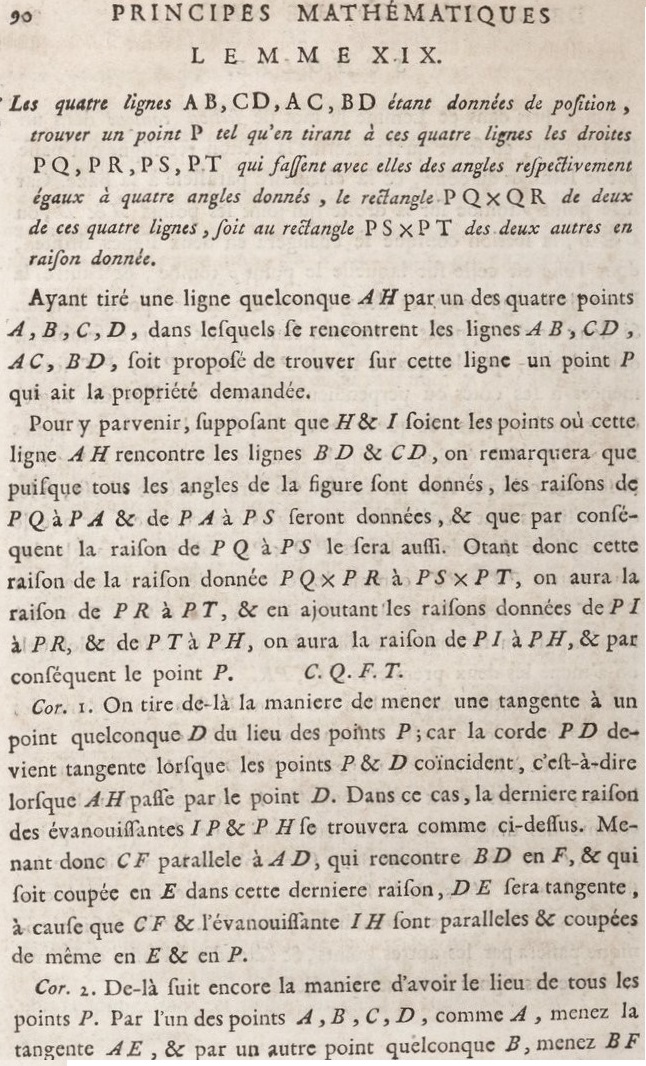 90 PRINCIPES MATHÉMATIQUES
LEMME XIX.
Les quatre lignes AB, CD, AC, BD étant données de poſition,
trouver un point P tel qu'en tirant à ces quatre lignes les droites
PQ, PR, PS, PT qui faſſent avec elles des angles reſpectivement
égaux à quatre angles donnés, le rectangle PQ×QR de deux
de ces quatre lignes, ſoit au rectangle PS×PT des deux autres en
raiſon donnée.
Ayant tiré une ligne quelconque AH par un des quatre points
A, B, C, D, dans leſquels ſe rencontrent les lignes AB, CD,
AC, BD, ſoit propoſé de trouver ſur cette ligne un point P
qui ait la propriété demandée.
Pour y parvenir, ſuppoſant que H & I ſoient les points où cette
ligne AH rencontre les lignes BD & CD, on remarquera que
puiſque tous les angles de la figure ſont donnés, les raiſons de
PQ à PA & de PA à PS ſeront données, & que par conſé-
quent la raiſon de PQ à PS le ſera auſſi. Otant donc cette
raiſon de la raiſon donnée PQ×PR à PS×PT, on aura la
raiſon de PR à PT, & en ajoutant les raiſons données de PI
à PR, & de PT à PH, on aura la raiſon de PI à PH, & par
conſéquent le point P. C. Q. F. T.
Cor. 1. On tire de-là la maniere de mener une tangente à un
point quelconque D du lieu des points P; car la corde PD de-
vient tangente lorſque les points P & D coïncident, c'eſt-à-dire
lorſque AH paſſe par le point D. Dans ce cas, la derniere raiſon
des évanouiſſantes IP & PH ſe trouvera comme ci-deſſus. Me-
nant donc CF parallele à AD, qui rencontre BD en F, & qui
ſoit coupée en E dans cette derniere raiſon, DE ſera tangente,
à cauſe que CF & l'évanouiſſante IH ſont paralleles & coupées
de même en E & en P.
Cor. 2. De-là ſuit encore la maniere d'avoir le lieu de tous les
points P. Par l'un des points A, B, C, D, comme A, menez la
tangente AE, & par un autre point quelconque B, menez BF